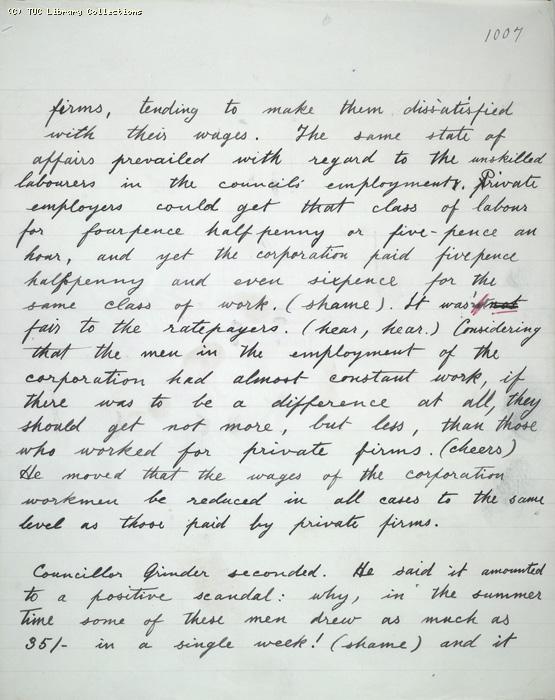 (C) TUC Library Collections
1007
firms, tending to make them dissatisfied
with their wages. The same state of
affairs prevailed with regard to the unskilled
labourers in the council's employment. Private
employers could get that class of labour
for fourpence halfpenny or five-pence an
hour, and yet the corporation paid fivepence
halfpenny and even sixpence for the
same class of work. (shame). It was not
fair to the ratepayers. (hear, hear.) Considering
that the men in the employment of the
corporation had almost constant work, if
there was to be a difference at all, they
should get not more, but less, than those
who worked for private firms. (cheers)
He moved that the wages of the corporation
workmen be reduced in all cases to the same
level as those paid by private firms.
Councillor Grinder seconded. He said it amounted
to a positive scandal: why, in the summer
time some of these men drew as much as
35/- in a single week! (shame) and it